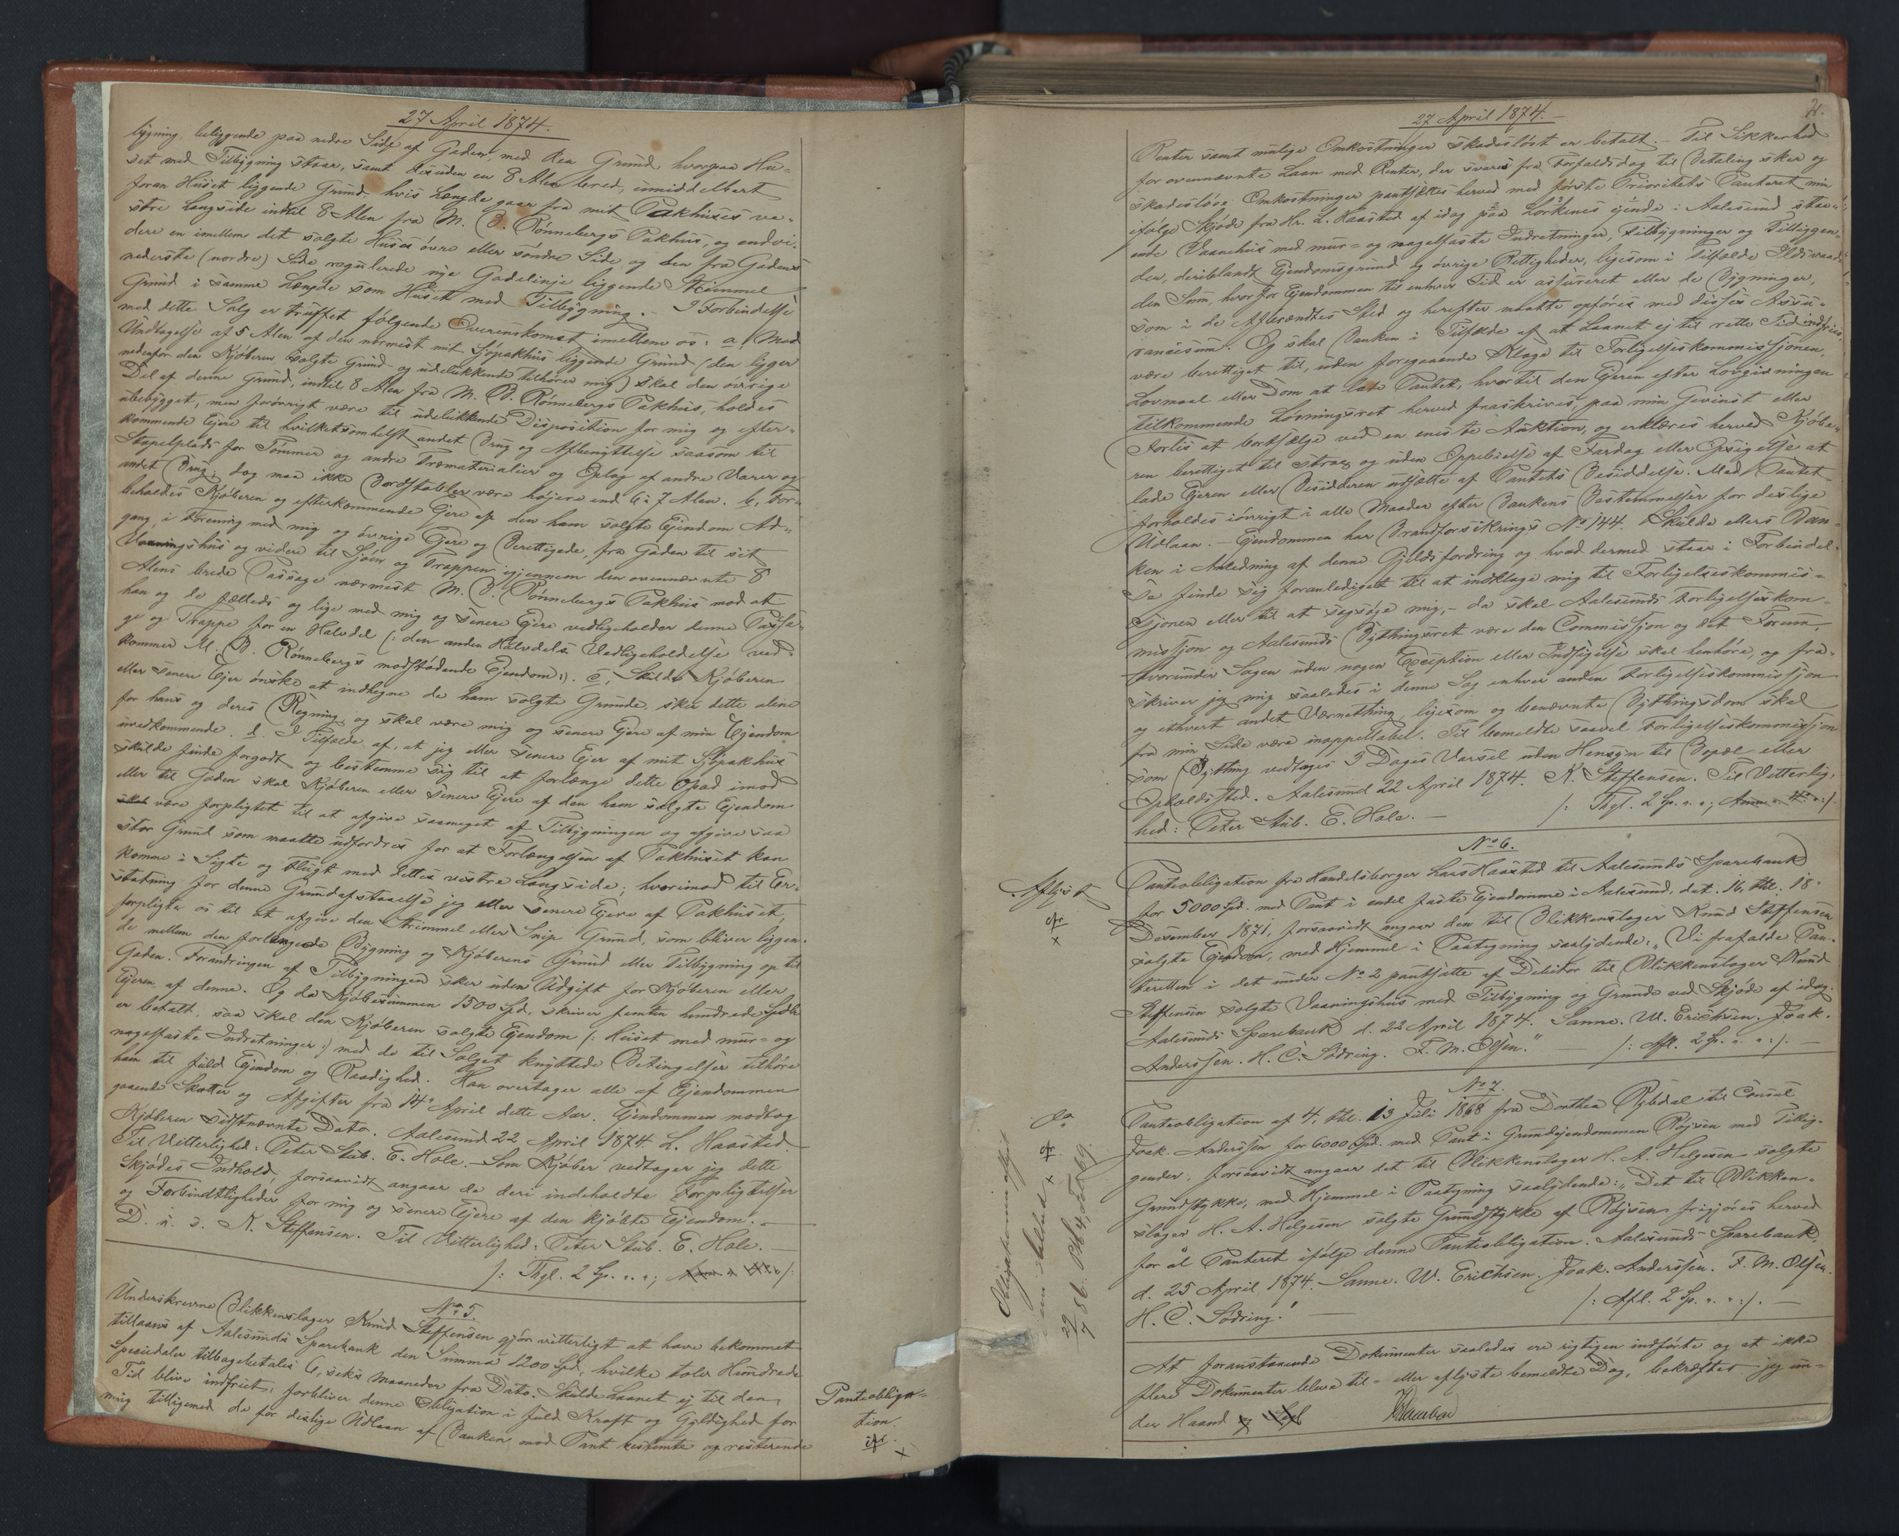 27 April 1874.
bygning, beliggende paa nedre Side af Gaden, med den Grund hvorpaa Hu-
set med Tilbygning staar, samt desuden en 8 Alen bred, umiddelbart
foran Huset liggende Grund hvis Længde gaar fra mit Pakhuses ve-
stre Langside indtil 8 Alen fra M. O. Rønnebergs Pakhus, og endvi-
dere en imellem det solgte Huses øvre eller søndre Side og den fra Gadens
nederste (nordre) Side regulerede nye Gadelinje liggende Strimmel
Grund i samme Længde som Huset med Tilbygning. – I Forbindelse
med dette Salg er truffet følgende Overenskomst imellem os: a, Med
Undtagelse af 5 Alen af den nærmest mit Sjøpakhus liggende Grund (den ligger
nedenfor den Kjøberen solgte Grund og udelukkende tilhører mig) skal den øvrige
Del af denne Grund, indtil 8 Alen fra M. O. Rønnebergs Pakhus, holdes
ubebygget, men forøvrigt være til udelukkende Disposition for mig og efter-
kommende Ejere til hvilketsomhelst andet Brug og Afbenyttelse saasom til
Stapelplads for Tømmer og andre Træmaterialier og Oplag af andre Varer og
andet Brug; dog maa ikke Bordstabler være højere end 6 à 7 Alen. b, For-
beholdes Kjøberen og efterkommende Ejere af den ham solgte Ejendom Ad-
gang, i Forening med mig og øvrige Ejere og Berettigede, fra Gaden til sit
Vaaningshus og videre til Søen og Trappen igjennem den ovennævnte 8
Alens brede Passage nærmest M. O. Rønnebergs Pakhus mod at
han og de fælleds og lige med mig og senere Ejere vedligeholder denne Passa-
ge og Trappe for en Halvdel (: den anden Halvdels Vedligeholdelse ved-
kommer M. O. Rønnebergs modstødende Ejendom:). c, Skulde Kjøberen
eller senere Ejer ønske at indhegne de ham solgte Grunde, sker dette alene
for hans og deres Regning og skal være mig og senere Ejere af min Ejendom
uvedkommende. d, I Tilfælde af, at jeg eller senere Ejer af mit Sjøpakhus
skulde finde forgodt og bestemme sig til at forlænge dette opad imod
eller til Gaden skal Kjøberen eller senere Ejere af den ham solgte Ejendom
skal være forpligtet til at afgive saameget af Tilbygningen og afgive saa
stor Grund som maatte udfordres for at Forlængelsen af Pakhuset kan
komme i Sigte og Flugt med dettes vestre Langside; hvorimod til Er-
statning for denne Grundafstaaelse jeg eller senere Ejere af Pakhuset,
forpligte os til at afgive den Strimmel eller Snip Grund, som bliver liggen-
de mellem den forlængede Bygning og Kjøberens Grund eller Tilbygning op til
Gaden. Forandringen af Tilbygningen sker uden Udgift for Kjøberen eller
Ejeren af denne. Og da Kjøbesummen 1500 Spd, skriver femten hundrede Spdlr
er betalt, saa skal den Kjøberen solgte Ejendom (: Huset med mur- og
nagelfaste Indretninger:) med de til Salget knyttede Betingelser tilhøre
ham til fuld Ejendom og Raadighed. Han overtager alle af Ejendommen
gaaende Skatter og Afgifter fra 14de April dette Aar. Ejendommen modtog
Kjøberen sidstnævnte Dato. Aalesund 22 April 1874. L. Haasted.
Til Vitterlighed: Peter Stub. E. Hole. – Som Kjøber vedtager jeg dette
Skjødes Indhold, forsaavidt angaar de deri indeholdte Forpligtelser
og Forbindtligheder for mig og senere Ejere af den kjøbte Ejendom. –
D. u. s. K. Steffensen. Til Vitterlighed: Peter Stub. E. Hole. –
/: Thgl. 2 Sp. „ „;
No 5.
Underskrevne Blikkenslager Knud Steffensen gjør vitterligt at have bekommet
tillaans af Aalesunds Sparebank den Summa 1200 Spd, hvilke tolv Hundrede
Speciedaler tilbagebetales 6, seks Maaneder fra Dato. Skulde Laanet ej til den
Tid blive indfriet, forbliver denne Obligation i fuld Kraft og Gyldighed for
mig tilligemed de for deslige Udlaan af Banken mod Pant bestemte og resterende
Panteobliga-
tion.
27 April 1874. –
Renter samt mulige Omkostninger skadesløst er betalt. – Til Sikkerhed
for ovennævnte Laan med Renter, der svares fra Forfaldsdag til Betaling sker og
skadesløse Omkostninger pantsættes herved med første Prioritets Panteret min
ifølge Skjøde fra Hr. L. Haasted af idag paa Lorkenes ejende i Aalesund staa-
ende Vaanehus med mur- og nagelfaste Indretninger, Tilbygninger og Tilliggen-
der, deriblandt Ejendomsgrund og øvrige Rettigheder, ligesom i Tilfælde Ildsvaade
den Sum, hvorfor Ejendommen til enhver Tid er assureret eller de Bygninger,
som i de Afbrændtes Sted og herefter maatte opføres med disses Assu-
rancesum. Og skal Banken i Tilfælde af at Laanet ej til rette Tid indfries,
være berettiget til, uden foregaaende Klage til Forligelseskommissionen,
Lovmaal eller Dom at lade Pantet, hvortil den Ejeren efter Lovgivningen
tilkommende Løsningsret herved fraskrives, paa min Gevinst eller
Forlis at bortsælge ved en eneste Auktion, og erklæres herved Kjøbe-
ren berettiget til strax og uden Oppebielse af Fardag eller Opsigelse at
lade Ejeren eller Besidderen udsætte af Pantets Besiddelse. Med Pantet
forholdes iøvrigt i alle Maader efter Bankens Bestemmelser for deslige
Udlaan. – Ejendommen har Brandforsikrings No 144. Skulde ellers Ban-
ken i Anledning af denne Gjeldsfordring og hvad dermed staar i Forbindel-
se finde sig foranlediget til at indklage mig til Forligelseskommis-
sjonen eller til at søgsøge mig, – da skal Aalesunds Forligelseskom-
missjon og Aalesunds Bythingsret være den Commissjon og det Forum,
hvorunder Sagen uden nogen Exception eller Indsigelse skal henhøre, og fra-
skriver jeg mig saaledes i denne Sag enhver anden Forligelseskommissjon
og ethvert andet Værnething, ligesom og benævnte Bythingsdom skal
fra min Side være inappellabel. Til bemeldte saavel Forligelseskommissjon
som Bything vedtages 3 Dages Varsel uden Hensyn til Bopæl eller
Opholdssted. Aalesund 22 April 1874. K. Steffensen. Til Vitterlig-
hed: Peter Stub. E. Hole. – /: Thgl. 2 Sp. „ „;
No 6.
Aflyst
Panteobligation fra Handelsborger Lars Haasted til Aalesunds Sparebank
for 5000 Spd. med Pant i endel faste Ejendomme i Aalesund, dat. 16, thl. 18
Desember 1871, forsaavidt angaar den til Blikkenslager Knud Steffensen
solgte Ejendom, med Hjemmel i Paategning saalydende: „Vi frafalde Pan-
teretten i det under No 2 pantsatte af Debitor til Blikkenslager Knud
Steffensen solgte Vaaningshus med Tilbygning og Grunde ved Skjøde af idag.
Aalesunds Sparebank d. 22 April 1874. Sanne. W. Erichsen. Joak.
Anderssen. H. C. Sødring. F. M. Olsen.” – /: Afl. 2 Sp. „ „:/. –
No 7.
Do
Panteobligation af 4, thl. 13 Juli 1868 fra Dorthea Rybdal til Consul
Joak. Anderssen for 6000 Spd. med Pant i Grundejendommen Røjsen med Tillig-
gender, forsaavidt angaar det til Blikkenslager H. A. Helgesen solgte
Grundstykke, med Hjemmel i Paategning saalydende: „Det til Blikken-
slager H. A. Helgesen solgte Grundstykke af Røjsen frigjøres herved
for al Panteret ifølge denne Panteobligation. Aalesunds Sparebank
d. 25 April 1874. Sanne. W. Erichsen. Joak. Anderssen. F. M. Olsen.
H. C. Sødring.” – /: Afl. 2 Sp. „ „:/. –
At foranstaaende Dokumenter saaledes ere rigtigen indførte og at ikke
flere Dokumenter bleve til- eller aflyste bemeldte Dag, bekræftes jeg un-
der Haand og Segl